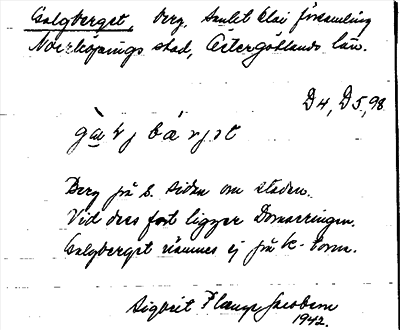 Galgberget, berg, Sankt Olai församling
Norrköpings stad, Östergötlands län.
D4, D5, 98
Berg på s. sidan om staden.
Vid dess fot ligger Domarringen.
Galgberget nämnes ej på k-torm.
Sigbrit Jacobson
1942.